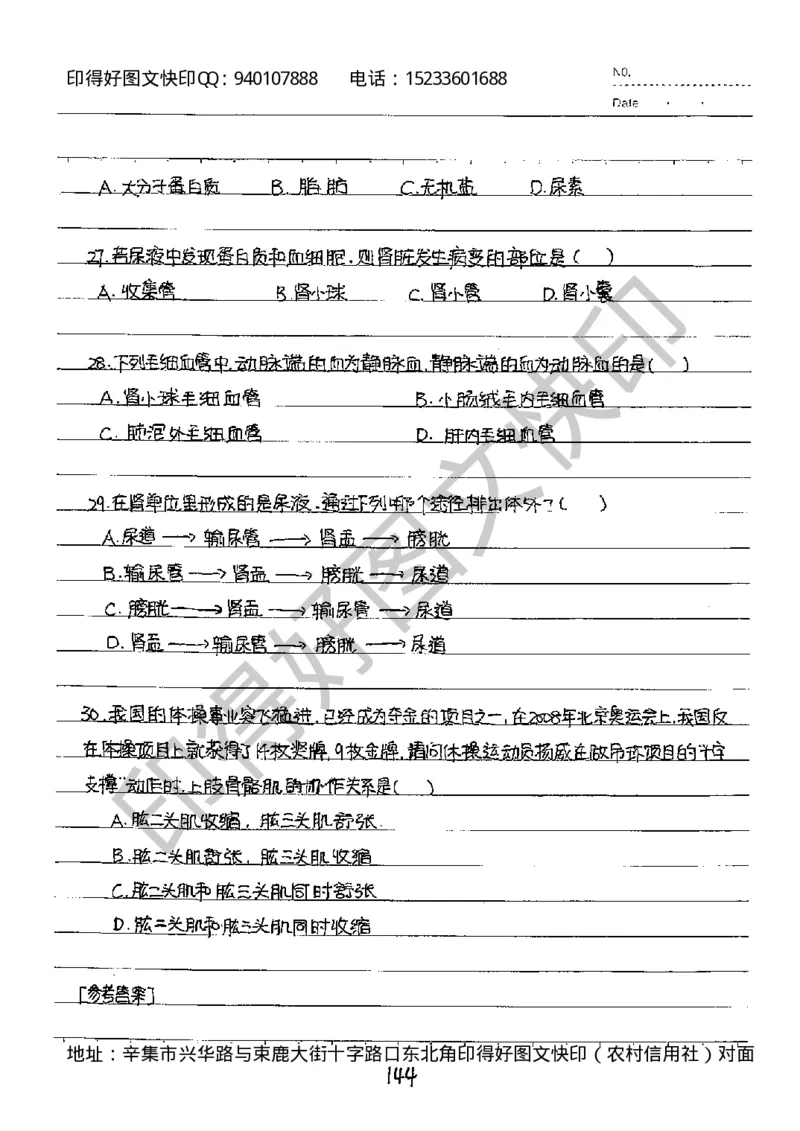 印得好图文快印QQ：940107888 电话：15233601688
NO.
Date
A.大分子蛋白质 B.脂肪 C.无机盐 D.尿素
27.若尿液中发现蛋白质和血细胞，则肾脏发生病变的部位是（ ）
A.收集管 B.肾小球 C.肾小管 D.肾小囊
28.下列毛细血管中，动脉端的血为静脉血，静脉端的血为动脉血的是（ ）
A.肾小球毛细血管 B.小肠绒毛内毛细血管
C.肺泡外毛细血管 D.肝内毛细血管
29.在肾单位里形成的是尿液，通过下列哪个途径排出体外？（ ）
A.尿道→输尿管→肾盂→膀胱
B.输尿管→肾盂→膀胱→尿道
C.膀胱→肾盂→输尿管→尿道
D.肾盂→输尿管→膀胱→尿道
30.我国的体操事业突飞猛进，已经成为夺金的项目之一，在2008年北京奥运会上，我国仅
在体操项目上就获得了14枚奖牌，9枚金牌，请问体操运动员杨威在做吊环项目的“十字
支撑”动作时，上肢骨骼肌的协作关系是（ ）
A.肱二头肌收缩，肱三头肌舒张.
B.肱二头肌舒张，肱三头肌收缩
C.肱二头肌和肱三头肌同时舒张
D.肱二头肌和肱三头肌同时收缩
[参考答案]
地址：辛集市兴华路与束鹿大街十字路口东北角印得好图文快印（农村信用社）对面
144
印得好图文快印